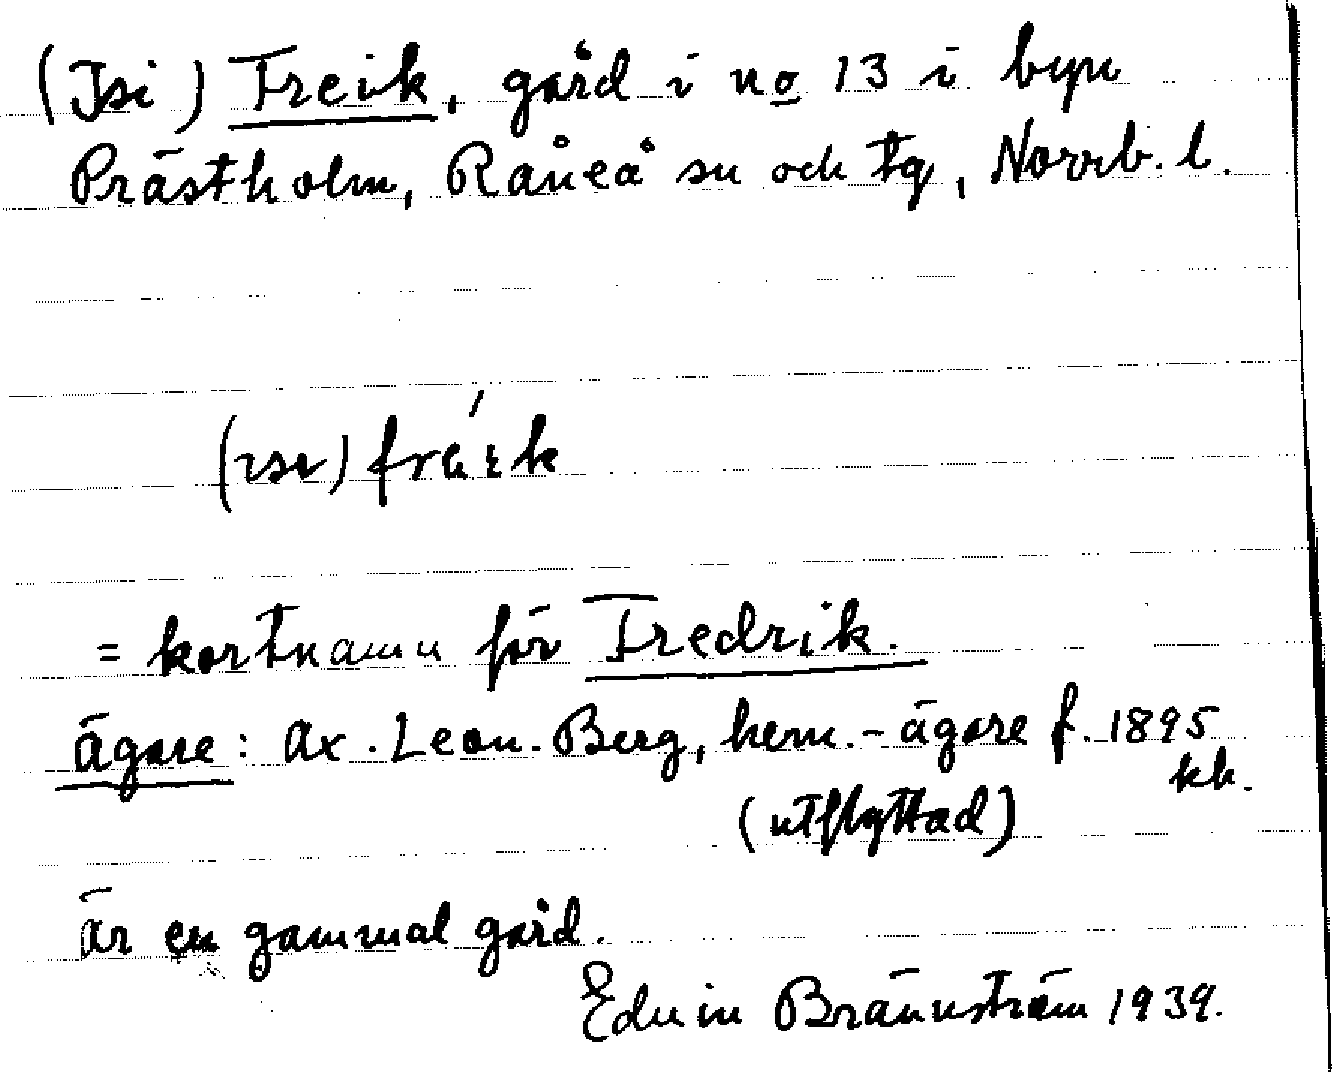 (Isi) Freik, gård i no 13 i byn
Prästholm, Råneå sn och tg, Norrb. l.
(ɩsɩ) frɛ́ɩk
= kortnamn för Fredrik.
ägare: Ax. Leon. Berg, hem.-ägare f. 1895
kb.
(utflyttad)
är en gammal gård.
Edvin Brännström 1939.